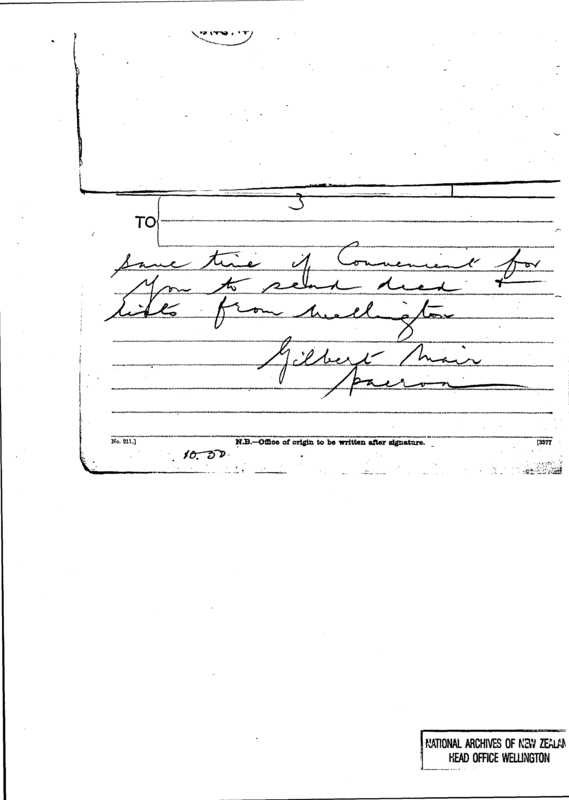 3
TO
save time if Convenient for
You to send deed +
lists from Wellington
Gilbert Mair
Paeroa
No. 211.]
N.B.—Office of origin to be written after signature.
10.50
NATIONAL ARCHIVES OF NEW ZEALAN
HEAD OFFICE WELLINGTON